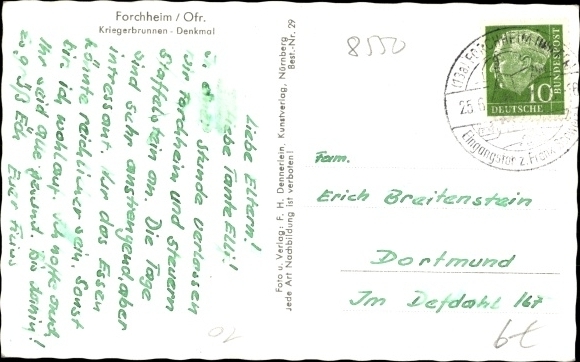 Forchheim / Ofr.
Kriegerbrunnen - Denkmal
Liebe Eltern!
liebe Tante Elli!
Stunde verlassen
wir Forchheim und steuern
Staffelstein an. Die Tage
sind sehr anstrengend, aber
interesant. Nur das Essen
könnte reichlicher sein. Sonst
bin ich wohlauf. Ich hoffe auch
Ihr seid alle gesund. Bis dahin!
Es Euch Euer
Foto u. Verlag: F. H. Dennerlein, Kunstverlag, Nürnberg
Best.-Nr. 29
Jede Art Nachbildung ist verboten!
8550
(13a) FORCHHEIM
25.6
Eingangstor z. Fränk.
10
DEUTSCHE
BUNDESPOST
Fam.
Erich Breitenstein
Dortmund
Im Defdahl 167